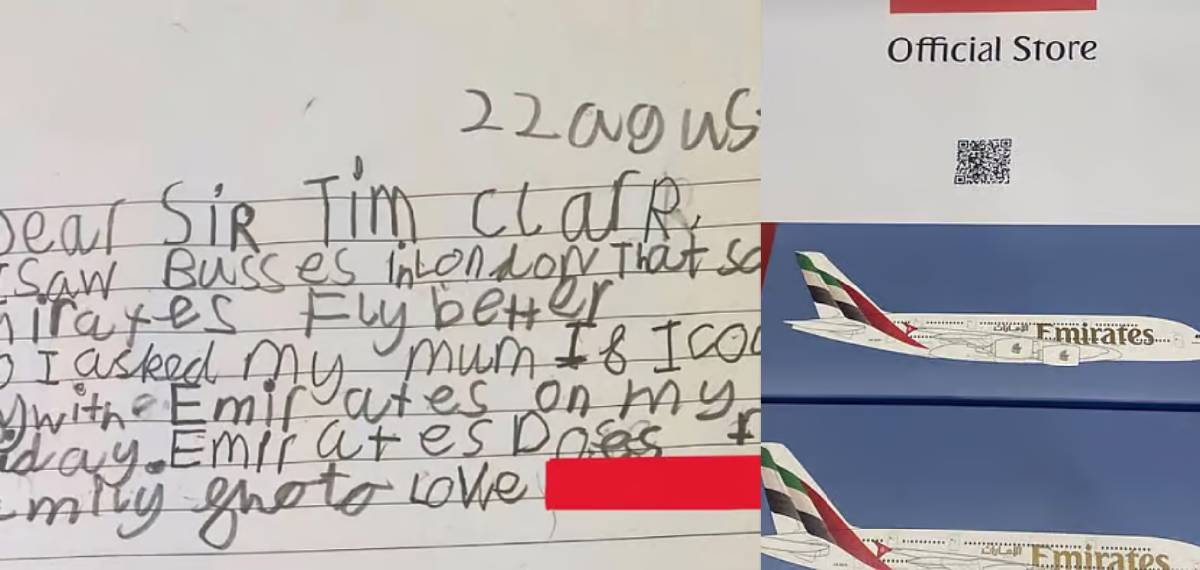 22 agus
Dear Sir Tim Clark,
I Saw Busses in London That sa
mirates Fly better
I asked my mum If I cou
y with Emirates on my
iday. Emirates Does
mily photo Love
Official Store
الإمارات Emirates
الإمارات Emirates